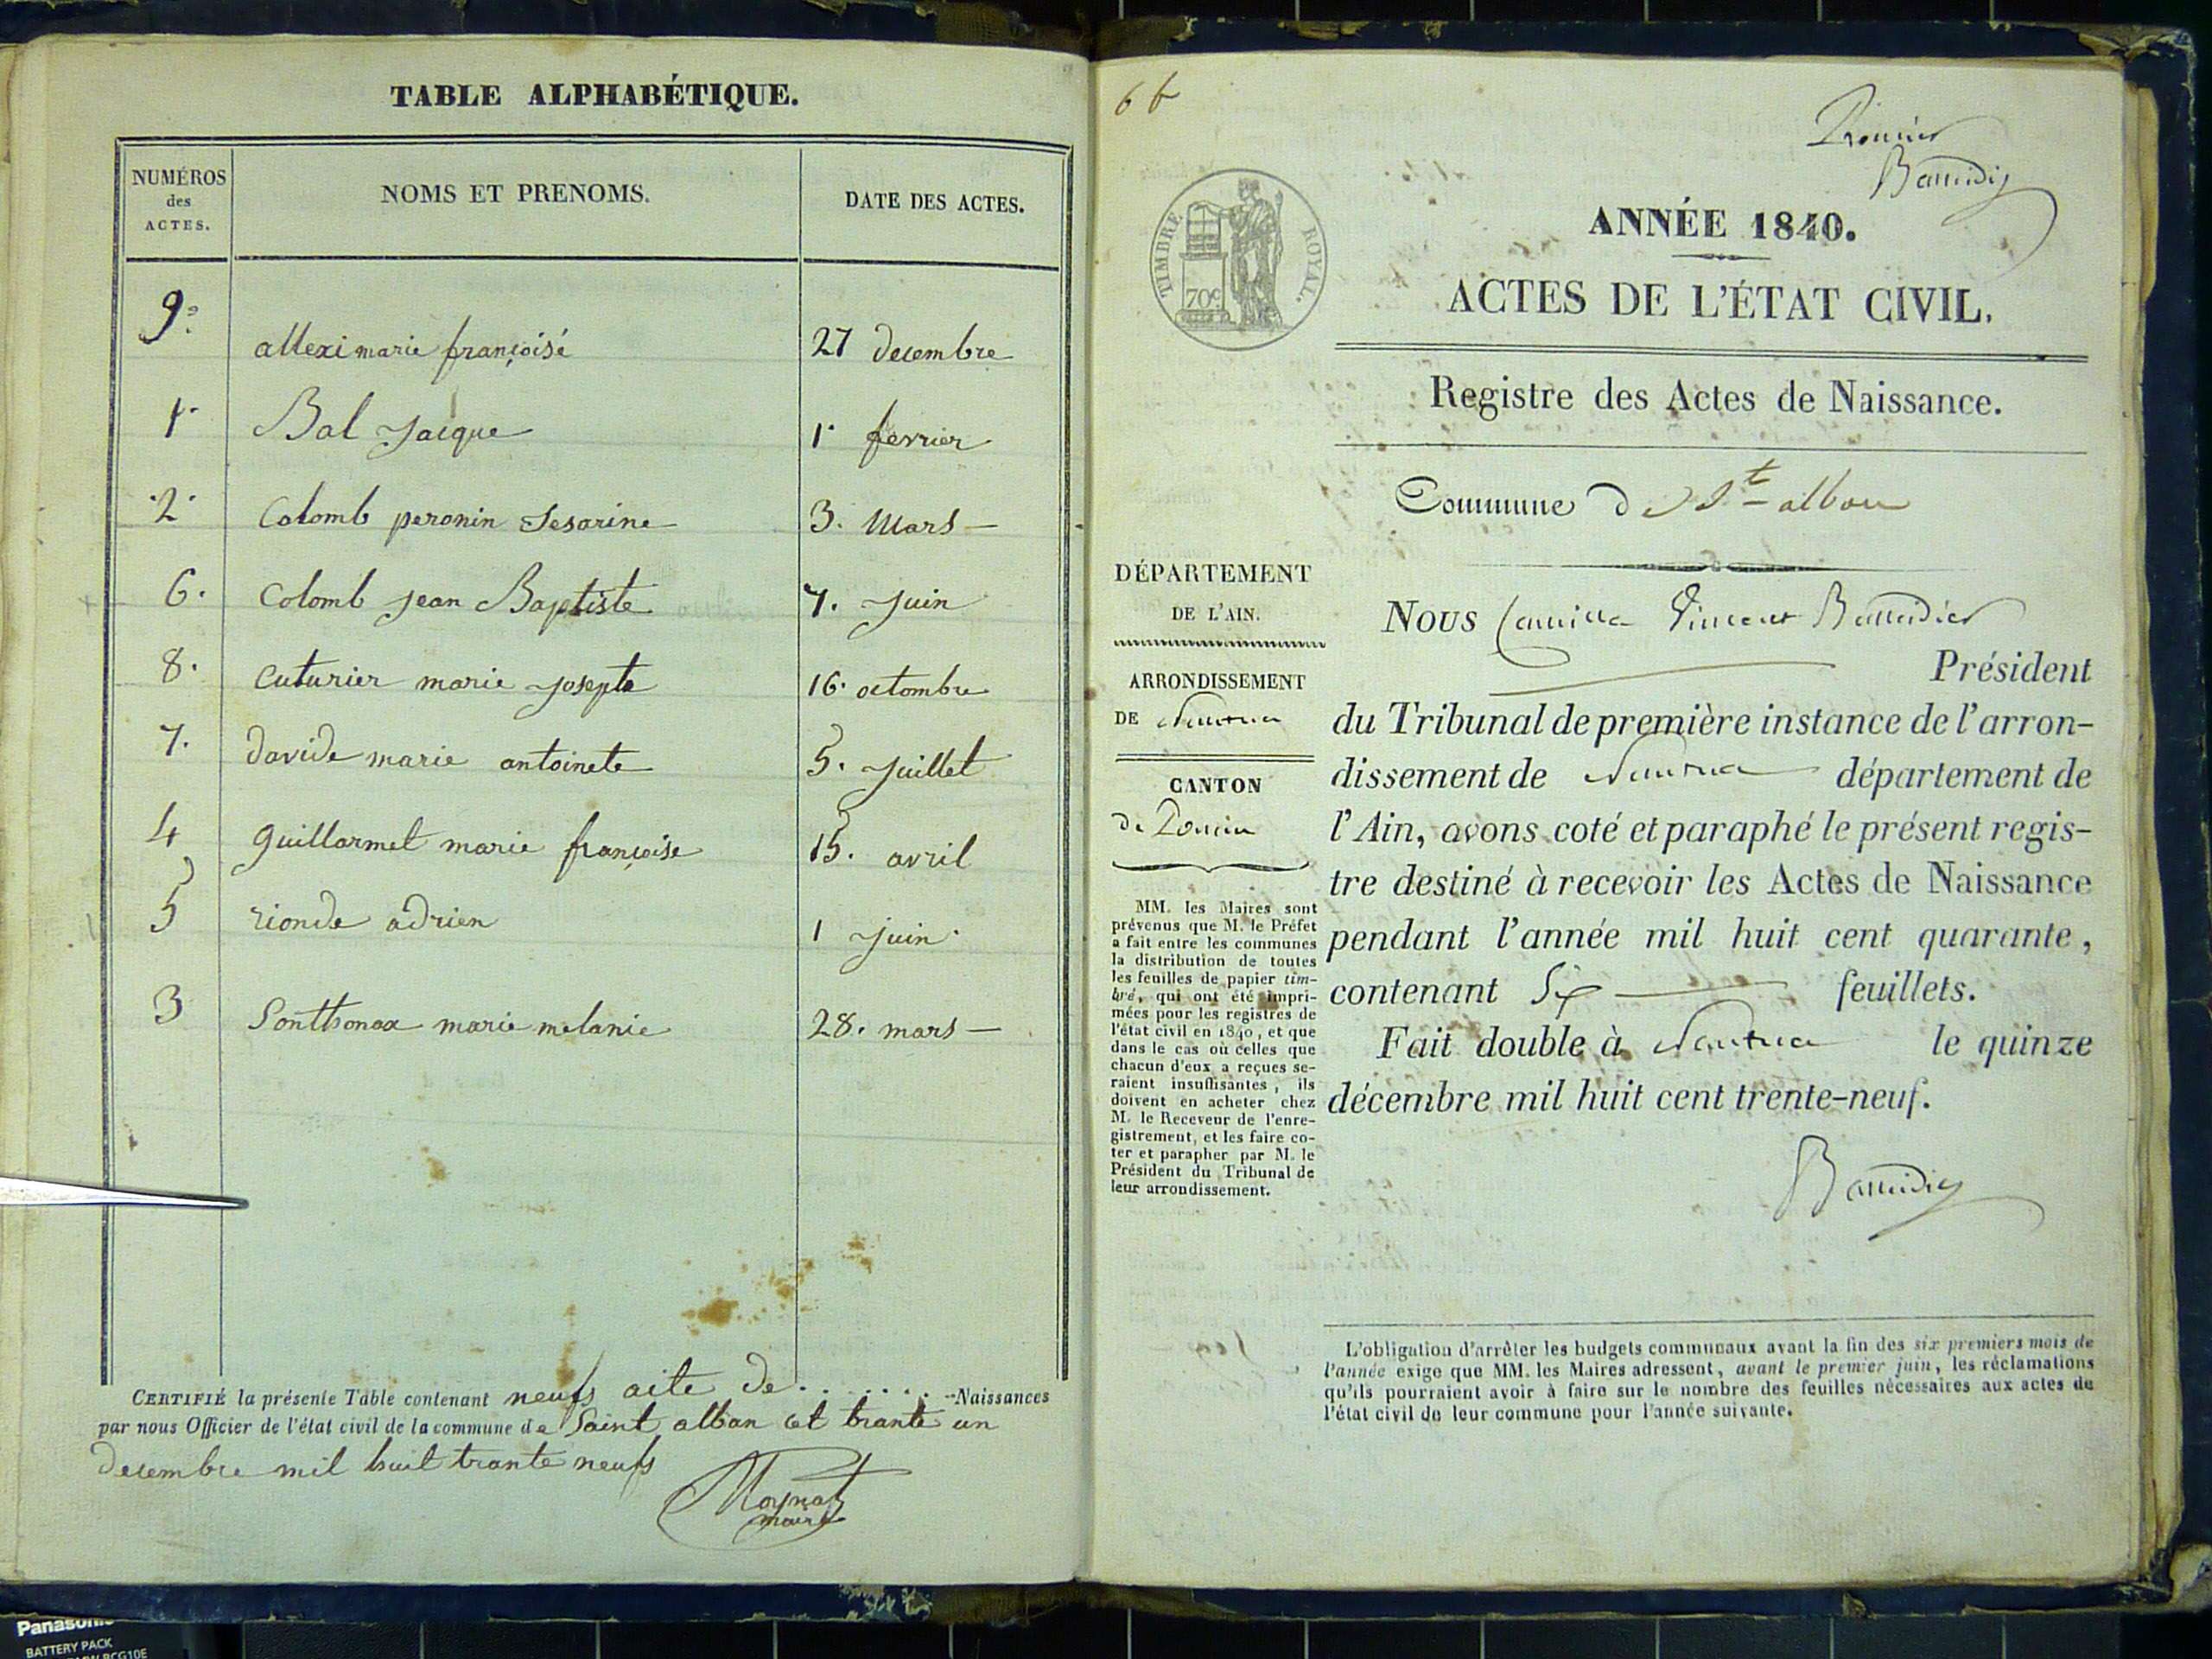 TABLE ALPHABÉTIQUE.
NUMÉROS des ACTES.
NOMS ET PRENOMS.
DATE DES ACTES.
9e allexi marie françoise 27 decembre
1. Bal Jacque 1. fevrier
2. Colomb peronin Sesarine 3. Mars
6. Colomb jean Baptiste 7. juin
8. Cuturier marie josepte 16. octombre
7. davide marie antoinete 5. juillet
4 guillarmet marie françoise 15. avril
5 rionde adrien 1 juin
3 Sonthonax marie melanie 28. mars
CERTIFIÉ la présente Table contenant neufs aite de . . . . . . Naissances
par nous Officier de l'état civil de la commune de Saint alban cet trante un
decembre mil huit trante neufs
maire
Panasonic
BATTERY PACK
TIMBRE ROYAL.
70c
ANNÉE 1840.
ACTES DE L'ÉTAT CIVIL.
Registre des Actes de Naissance.
Commune de St alban
DÉPARTEMENT
DE L'AIN.
ARRONDISSEMENT
DE Nantua
CANTON
de Poncin
MM. les Maires sont
prévenus que M. le Préfet
a fait entre les communes
la distribution de toutes
les feuilles de papier tim-
bré, qui ont été impri-
mées pour les registres de
l'état civil en 1840, et que
dans le cas où celles que
chacun d'eux a reçues se-
raient insuffisantes, ils
doivent en acheter chez
M. le Receveur de l'enre-
gistrement, et les faire co-
ter et parapher par M. le
Président du Tribunal de
leur arrondissement.
NOUS Camille Vincent
Président
du Tribunal de première instance de l'arron-
dissement de Nantua département de
l'Ain, avons coté et paraphé le présent regis-
tre destiné à recevoir les Actes de Naissance
pendant l'année mil huit cent quarante,
contenant Six feuillets.
Fait double à Nantua le quinze
décembre mil huit cent trente-neuf.
L'obligation d'arrêter les budgets communaux avant la fin des six premiers mois de
l'année exige que MM. les Maires adressent, avant le premier juin, les réclamations
qu'ils pourraient avoir à faire sur le nombre des feuilles nécessaires aux actes de
l'état civil de leur commune pour l'année suivante.